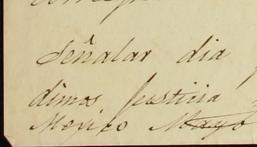 Señalar dia
dimos Justicia
Mexico Mayo